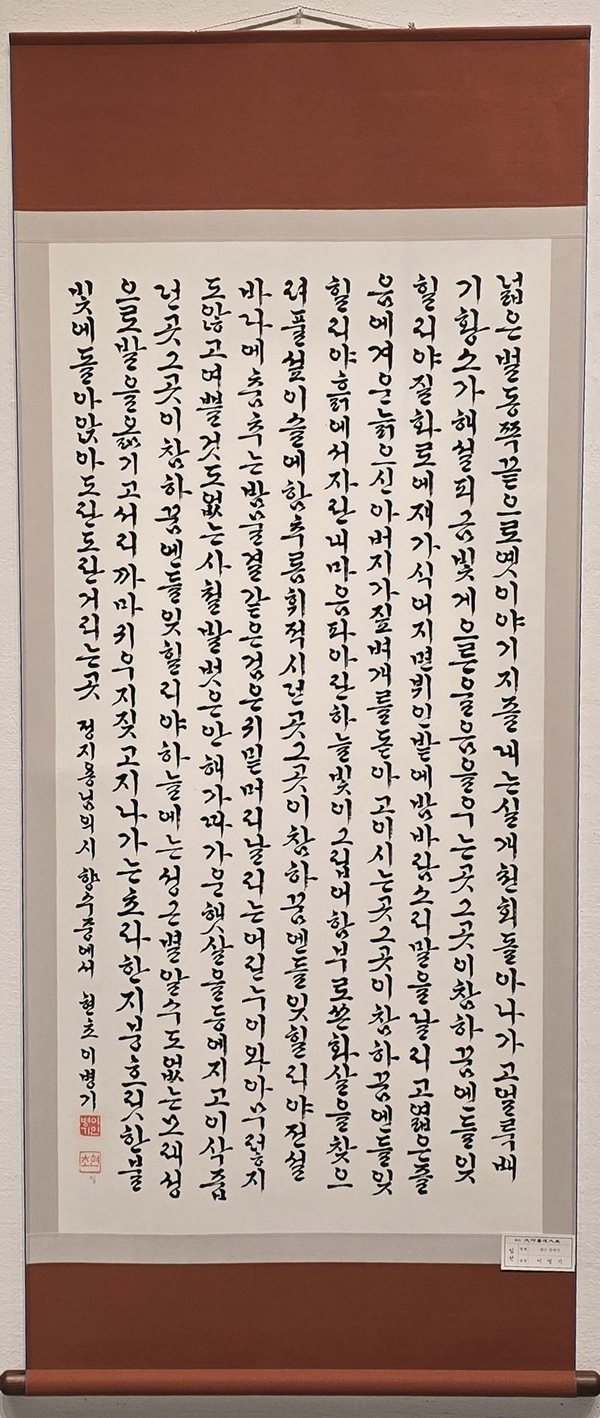 넓은벌동쪽끝으로옛이야기지즐대는실개천회돌아나가고얼룩배
기황소가해설피금빛게으른울음을우는곳그곳이참하꿈엔들잊
힐리야질화로에재가식어지면뷔인밭에밤바람소리말을달리고엷은졸
음에겨운늙으신아버지가짚벼개를돋아고이시는곳그곳이참하꿈엔들잊
힐리야흙에서자란내마음파아란하늘빛이그립어함부로쏜화살을찾으
려풀섶이슬에함추름휘적시던곳그곳이참하꿈엔들잊힐리야전설
바다에춤추는밤물결같은검은귀밑머리날리는어린누이와아무렇지
도않고여쁠것도없는사철발벗은안해가따가운햇살을등에지고이삭줍
던곳그곳이참하꿈엔들잊힐리야하늘에는성근별알수도없는모래성
으로발을옮기고서리까마귀우지짖고지나가는초라한지붕흐릿한불
빛에돌아앉아도란도란거리는곳 정지용님의시 향수중에서 현초 이병기
현초
입선
이병기